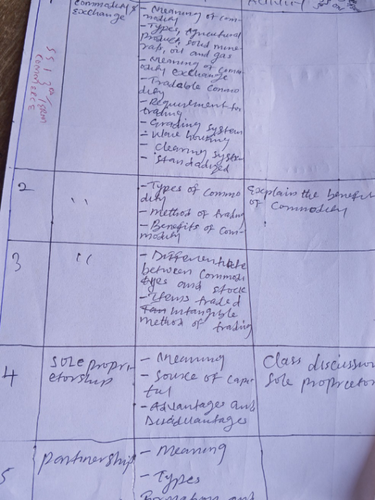 Commodity &
exchange
- Meaning of com-
modity
- Types, agricultural
product, solid mine-
rals, oil and gas
- Meaning of Comm-
odity exchange
- Tradable commo-
dity
- Requirement for
trading
- Grading system
- Ware housing
- Clearing system
- Standardized
SS 1 3rd Term
Commerce
2
"
- Types of Commo-
dity
- method of trading
- Benefits of com-
modity
Explain the benefit
of Commodity
3
"
- Differentiate
between Commod-
ities and stock
- Items traded
Intangible
method of trading
4
Sole propri-
etorship
- Meaning
- Source of Capi-
tal
- Advantages and
Disadvantages
Class discussion
Sole proprietor
5
Partnership
- Meaning
- Types